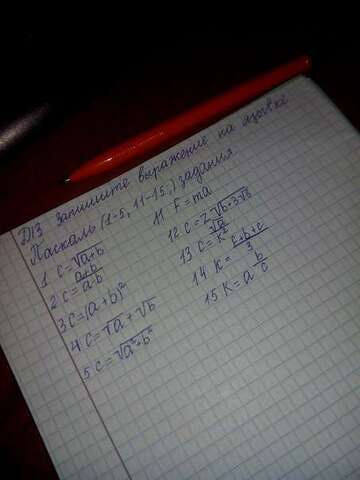 D/З Запишите выражение на языке
Паскаль (1-5, 11-15,) задания
1 c = √a+b
2 c = a+b / a-b
3 c = (a+b)²
4 c = √a + √b
5 c = √a²+b²
11 F = ma
12 c = 2√b+3√b
13 c = √a / K²
14 K = c+b+c / 3
15 K = a b / c